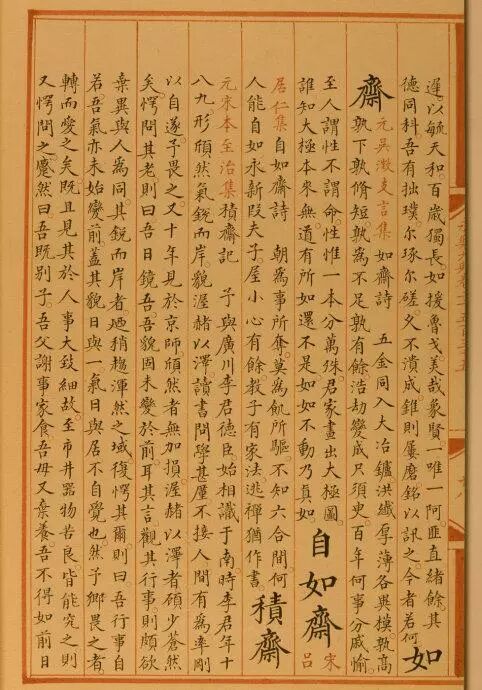 遲。以毓天和。百歲獨長。如援魯戈。美哉象賢。一唯一阿。匪直緒餘。其
德同科。吾有拙璞。尔琢尔磋。久不潰成。錐則屢磨。銘以訊之。今者若何。
如
齋
元吳澂支言集如齋詩 五金同入大冶鑪。洪纖厚薄各異模。孰高
孰下孰脩短。孰爲不足孰有餘。浩劫變成只須史。百年何事分戚愉。
至人謂性不謂命。性惟一本分萬殊。君家畫出大極圖。
誰知大極本來無。道有所如還不是。如如不動乃真如。
自如齋
宋
呂
居仁集自如齋詩 朝爲事所奪。莫爲飢所驅。不知六合間。何
人能自如。永新段夫子。屋小心有餘。教子有家法。逃禪猶作書。
積齋
元宋本至治集積齋記 予與廣川李君德臣始相識于南。時李君年十
八九。形頎然。氣銳而岸。貌渥赭以澤。讀書問學甚廑。不接人間。有爲率剛
以自遂。予畏之。又十年見於京師。頎然者無加損。渥赭以澤者碩少蒼然
矣。愕問其老。則曰吾日鏡吾。吾貌固未變於前耳。其言觀其行事。則頗欲
棄異與人爲同。其銳而岸者。迺稍趨渾然之域。復愕其爾。則曰吾行事自
若。吾氣亦未始變前。蓋其貌日與一。氣日與居。不自覺也。然予鄉畏之者。
轉而愛之矣。既且見其於人事大致細故。至市井器物苦良。皆能究之。則
又愕問之。蹙然曰。吾既別子。吾父謝事家食。吾母又棄養。吾不得如前日